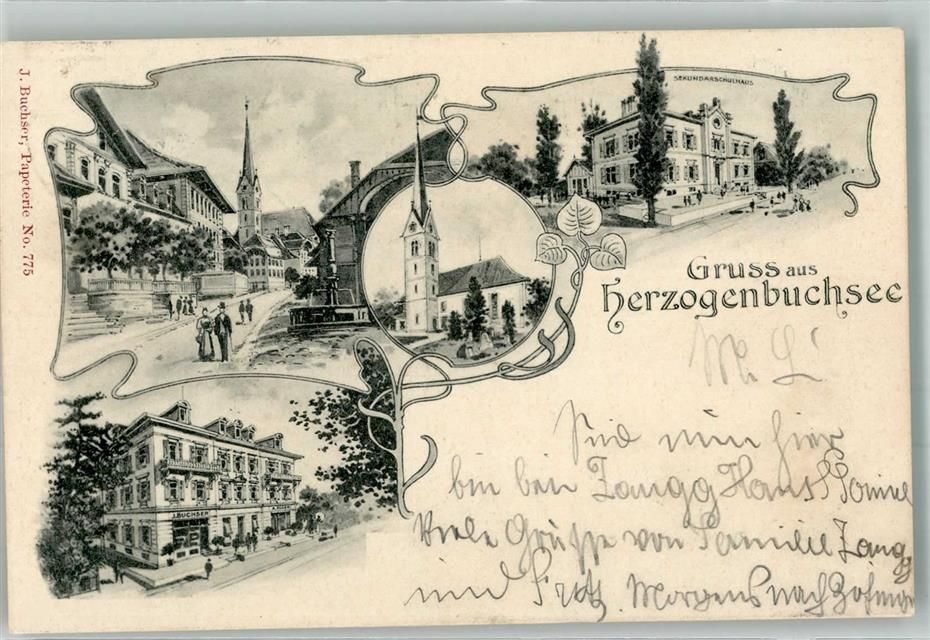 J. Buchser, Papeterie No. 775
SEKUNDARSCHULHAUS
Gruss aus
Herzogenbuchsee
J. BUCHSER
M. L.
Sind nun hier
bin bei Zaugg Hans
Viele Grüsse von Familie Zaugg
und Fritz. Morgens nach Zofingen